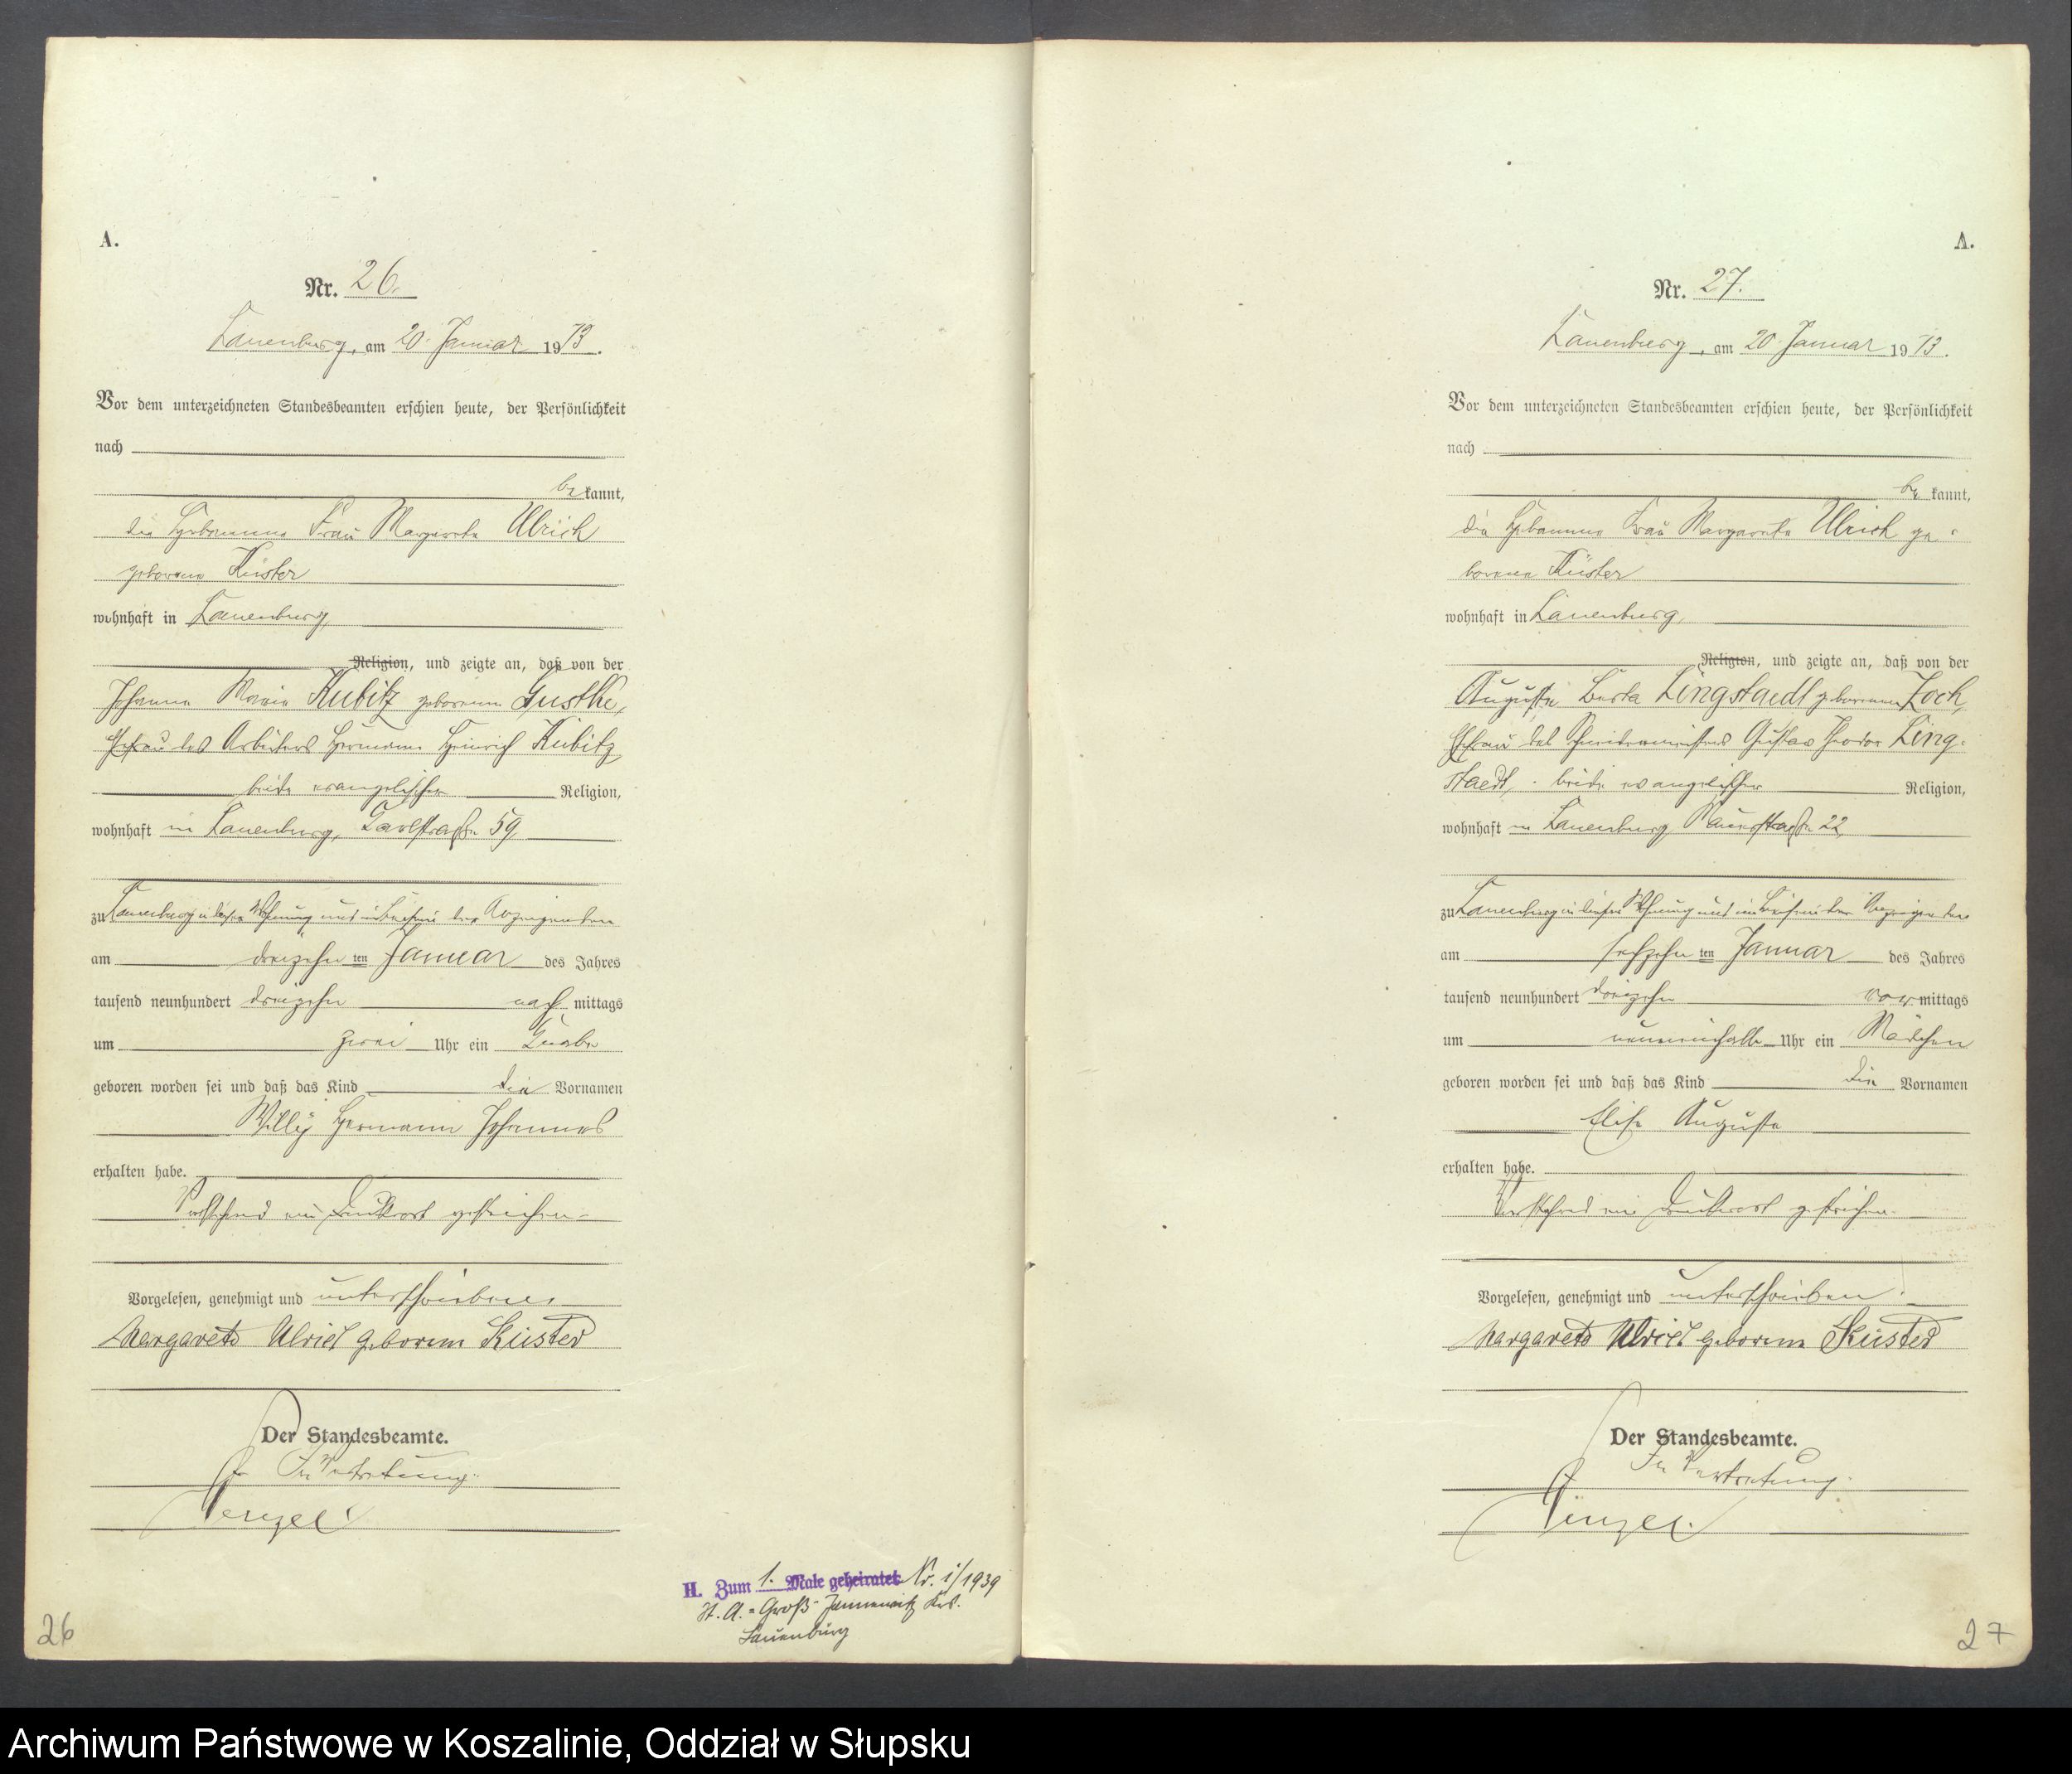 A.
Nr. 26.
Lauenburg, am 20. Januar 1913.
Vor dem unterzeichneten Standesbeamten erschien heute, der Persönlichkeit
nach
be kannt,
die Hebamme Frau Margarete Ulrich
geborene Küster
wohnhaft in Lauenburg,
Religion, und zeigte an, daß von der
Johanna Maria Kubitz geborenen Gusthe,
Ehefrau des Arbeiters Hermann Heinrich Kubitz
beide evangelischer Religion,
wohnhaft in Lauenburg, Carlstraße 59
zu Lauenburg in dieser Wohnung und im Beisein der Anzeigenden
am dreizehn ten Januar des Jahres
tausend neunhundert dreizehn nach mittags
um zwei Uhr ein Knabe
geboren worden sei und daß das Kind die Vornamen
Willy Hermann Johannes
erhalten habe.
Vorstehend ein Druckwort gestrichen.
Vorgelesen, genehmigt und unterschrieben.
Margarete Ulrich geborene Küster
Der Standesbeamte.
In Vertretung.
H. Zum 1. Male geheiratet Nr. 1/1939
St. A. Groß-Jannewitz Krs.
Lauenburg
26
A.
Nr. 27.
Lauenburg, am 20. Januar 1913.
Vor dem unterzeichneten Standesbeamten erschien heute, der Persönlichkeit
nach
be kannt,
die Hebamme Frau Margarete Ulrich ge-
borene Küster
wohnhaft in Lauenburg,
Religion, und zeigte an, daß von der
Auguste Berta Lingstaedt geborenen Zoch,
Ehefrau des Schneidermeisters Gustav Theodor Ling-
staedt, beide evangelischer Religion,
wohnhaft in Lauenburg 22,
zu Lauenburg in dieser Wohnung und im Beisein der Anzeigenden
am sechzehn ten Januar des Jahres
tausend neunhundert dreizehn vor mittags
um neuneinhalb Uhr ein Mädchen
geboren worden sei und daß das Kind die Vornamen
Elise Auguste
erhalten habe.
Vorstehend ein Druckwort gestrichen.
Vorgelesen, genehmigt und unterschrieben.
Margarete Ulrich geborene Küster
Der Standesbeamte.
In Vertretung.
27
Archiwum Państwowe w Koszalinie, Oddział w Słupsku